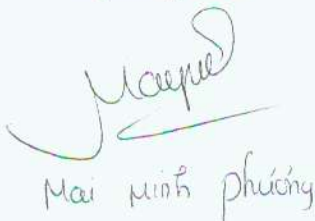 Mai Minh phương